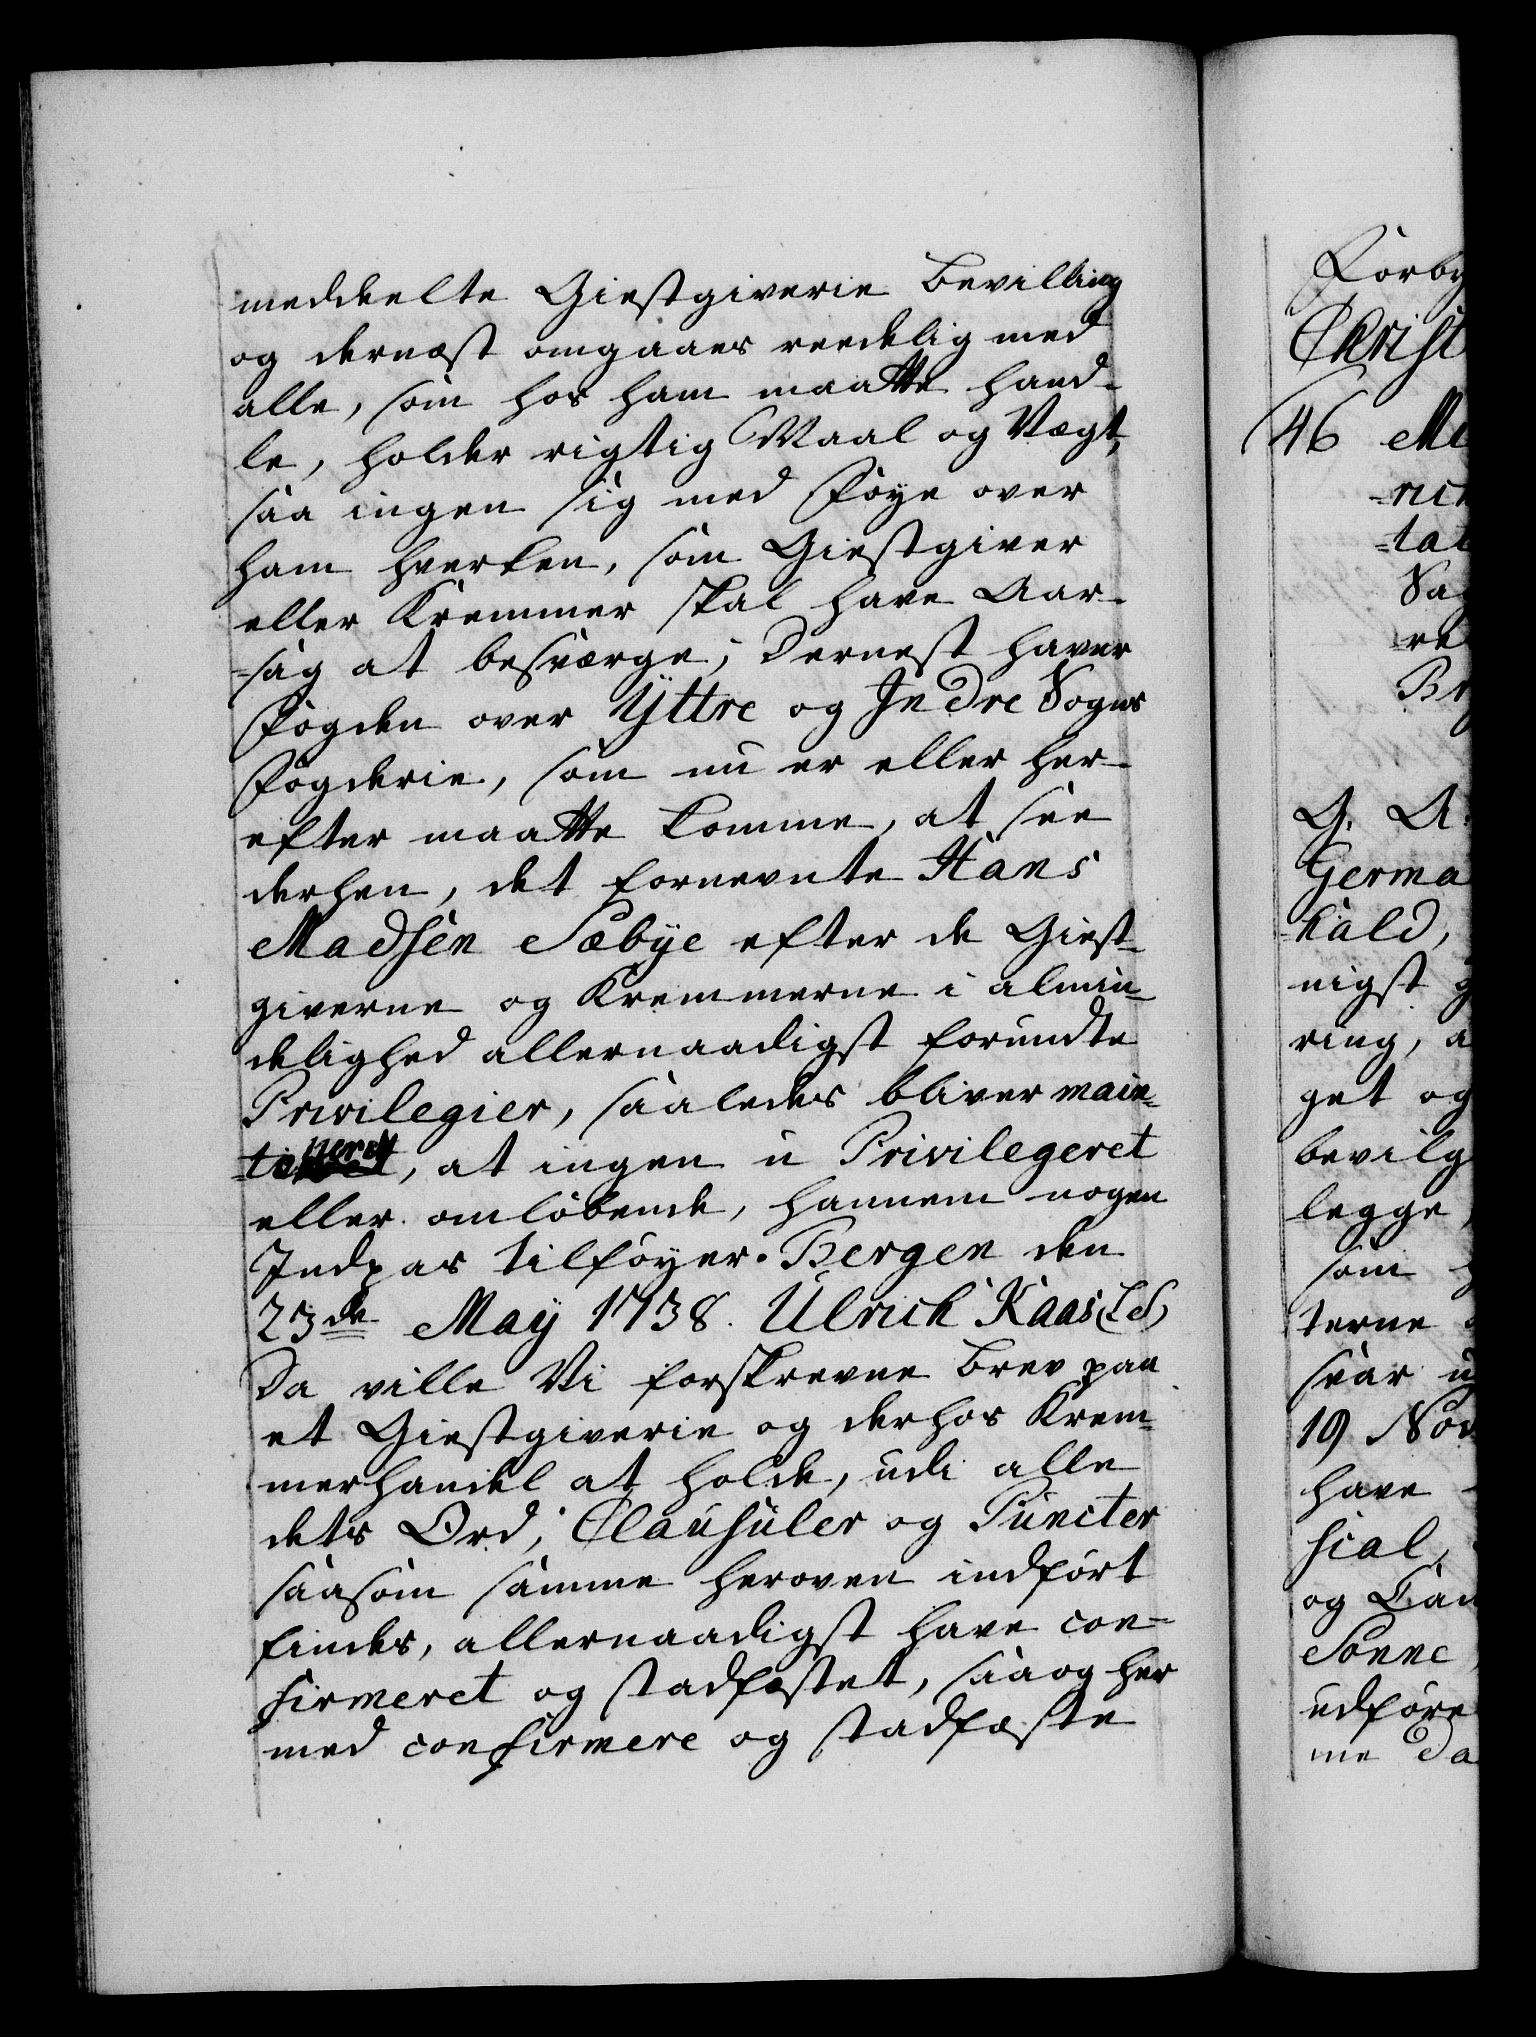 meddeelte Giestgiverie Bevilling
og dernæst omgaaes reedelig med
alle, som hos ham maatte hand-
le, holder rigtig Maal og Vægt,
saa ingen sig med Föye over
ham hverken, som Giestgiver
eller Kremmer skal have Aar-
-sag at besværge; Dernest haver
Fogden over Ÿttre og Indre Sogns
Fogderie, som nu er eller her-
efter maatte komme, at see
derhen, det fornevnte Hans
Madsen Sæbye efter de Giest-
giverne og Kremmerne i almin-
delighed allernaadigst forundte
Privilegier, saaledes bliver main-
-teneret, at ingen u Privilegeret
eller omlöbende, hannem nogen
Indpas tilföyer. Bergen den
23de May 1738. Ulrich Kaas (LS)
Da ville Vi forskrevne Brev paa
et Giestgiverie og derhos Krem-
merhandel at holde, udi alle
dets Ord, Clausuler og Puncter
saasom samme heroven indfört
findes, allernaadigst have con-
firmeret og stadfæstet, saa og her
med confirmere og stadfæste
Christ
46
G. A.
Germa
nigst
ring, a
get og
bevilg
legge
som
terne
svar
19 Nov
have
og
Sonne
udföre
me Da